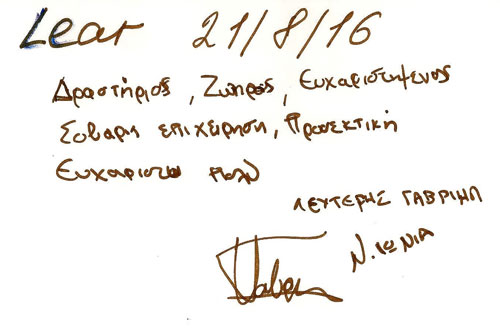 Lear 21/8/16
Δραστήριος, Ζωηρός, Ευχαριστημένος
Σοβαρή επιχείρηση, Προσεκτική
Ευχαριστω πολυ
ΛΕΥΤΕΡΗΣ ΓΑΒΡΙΗΛ
Ν. ΙΩΝΙΑ